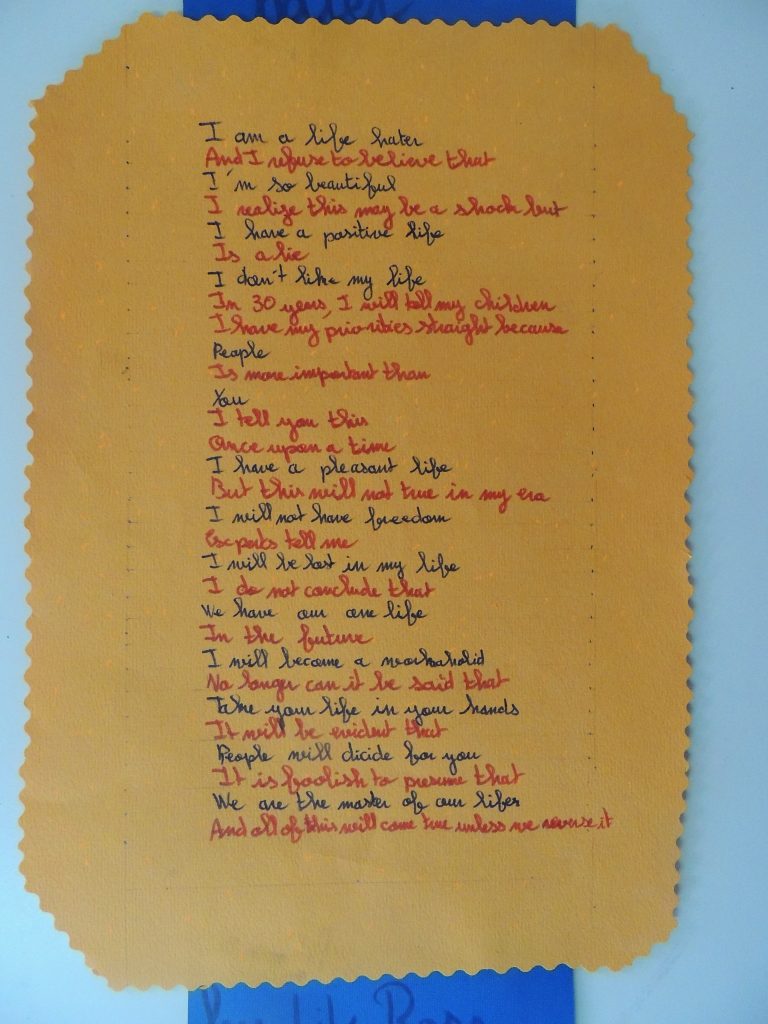 I am a life hater
And I refuse to believe that
I'm so beautiful
I realize this may be a shock but
I have a positive life
Is a lie
I don't like my life
In 30 years, I will tell my children
I have my priorities straight because
People
Is more important than
You
I tell you this
Once upon a time
I have a pleasant life
But this will not true in my era
I will not have freedom
Experts tell me
I will be lost in my life
I do not conclude that
We have our one life
In the future
I will become a workaholid
No longer can it be said that
Take your life in your hands
It will be evident that
People will dicide for you
It is foolish to presume that
We are the master of our lifes
And all of this will come true unless we reverse it